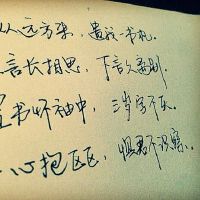 从远方来，遗我一书札。
言长相思，下言久离别。
置书怀袖中，三岁字不灭。
一心抱区区，惧君不识察。